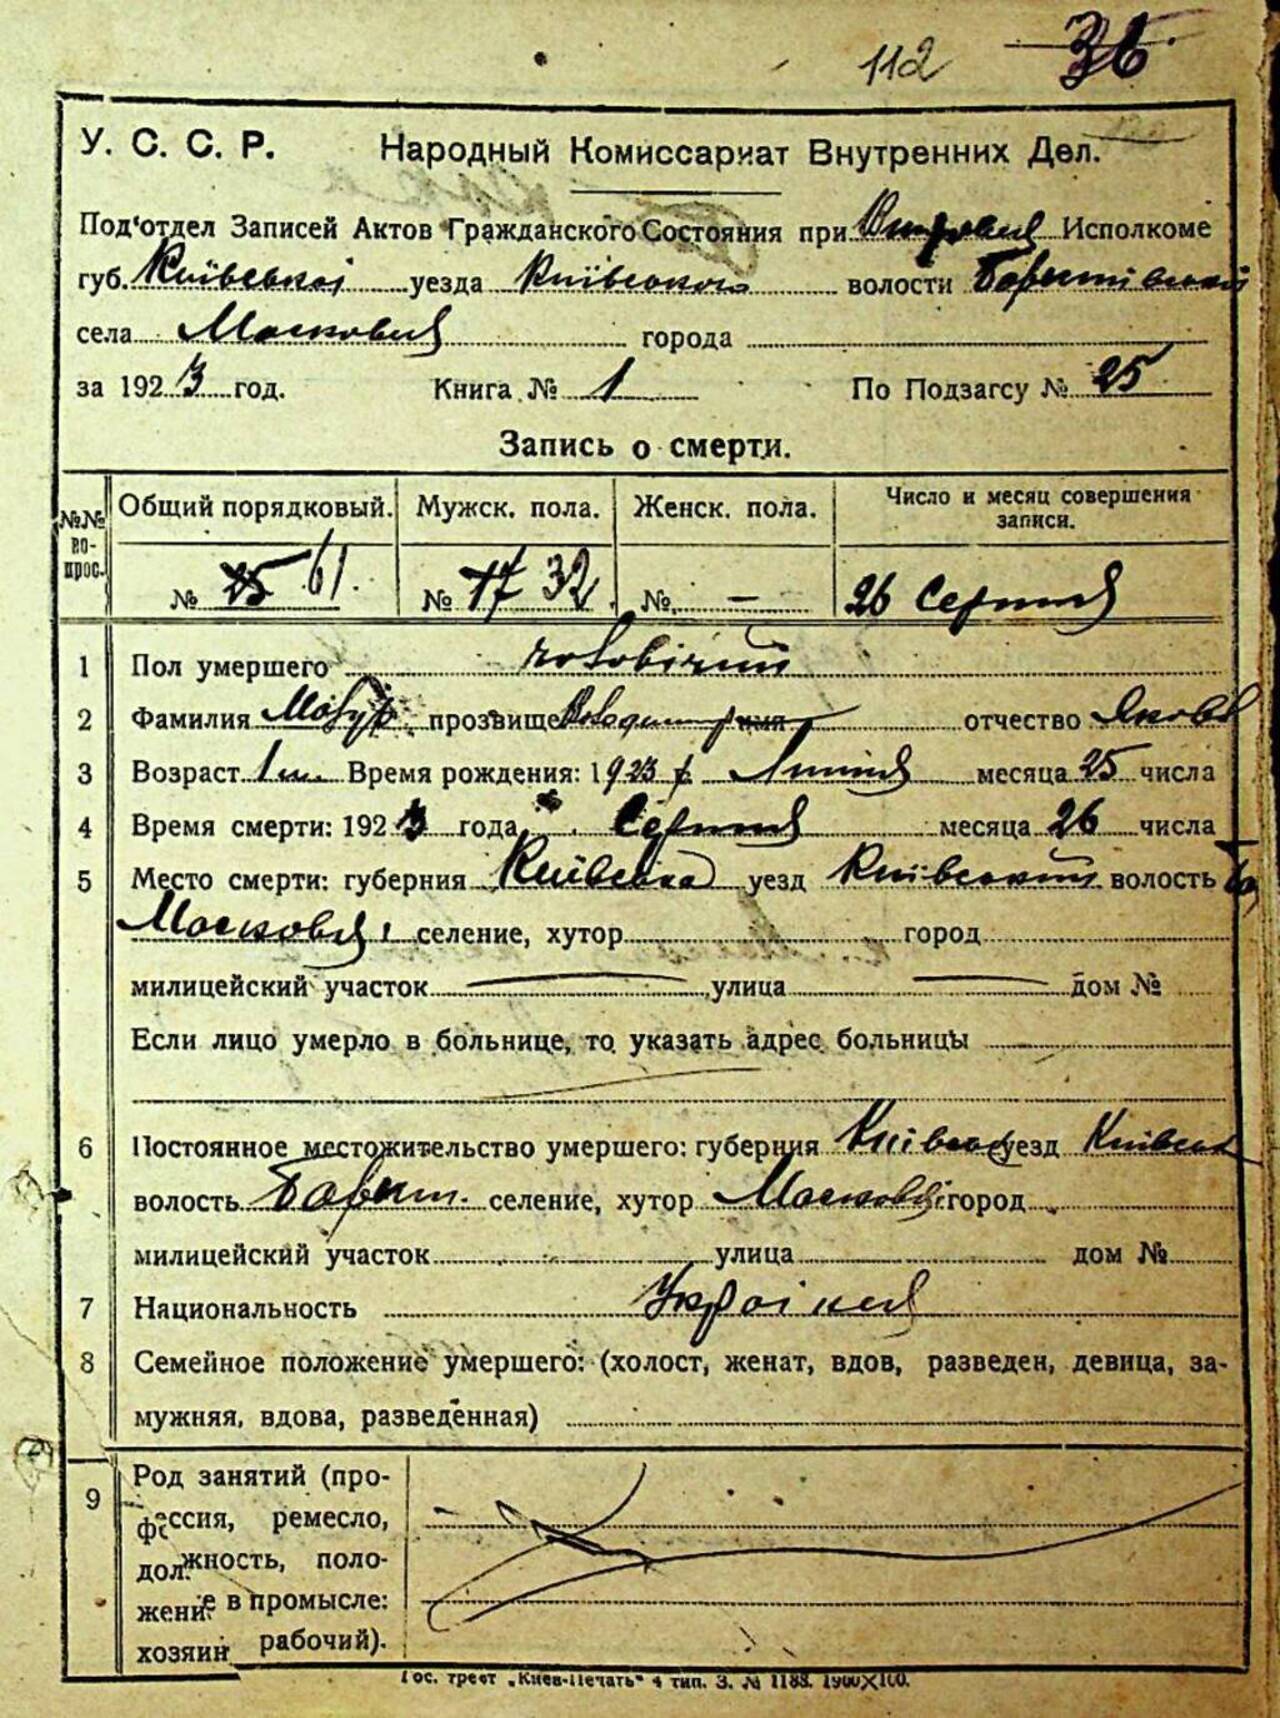 112 36
У. С. С. Р. Народный Комиссариат Внутренних Дел.
Под'отдел Записей Актов Гражданского Состояния при Исполкоме
губ. Київської уезда Київського волости Баришівської
села Московця города
за 1923 год. Книга № 1 По Подзагсу № 25
Запись о смерти.
№№ вопрос. Общий порядковый. Мужск. пола. Женск. пола. Число и месяц совершения записи.
№ 25 61. № 17 32 №. — 26 Серпня
1 Пол умершего чоловічий
2 Фамилия Мазур прозвище Володимир имя отчество Яковл
3 Возраст 1 м. Время рождения: 1923 р Липня месяца 25 числа
4 Время смерти: 1923 года Серпня месяца 26 числа
5 Место смерти: губерния Київська уезд Київський волость Ба
Московця селение, хутор город
милицейский участок улица дом №
Если лицо умерло в больнице, то указать адрес больницы
6 Постоянное местожительство умершего: губерния Київськ уезд Київськ
волость Бориш. селение, хутор Московці город
милицейский участок улица дом №
7 Национальность Україн
8 Семейное положение умершего: (холост, женат, вдов, разведен, девица, за-
мужняя, вдова, разведенная)
9 Род занятий (про-
фессия, ремесло,
должность, поло-
жение в промысле:
хозяин рабочий).
Гос. трест „Киев-Печать" 4 тип. З. № 1188. 1900X100.